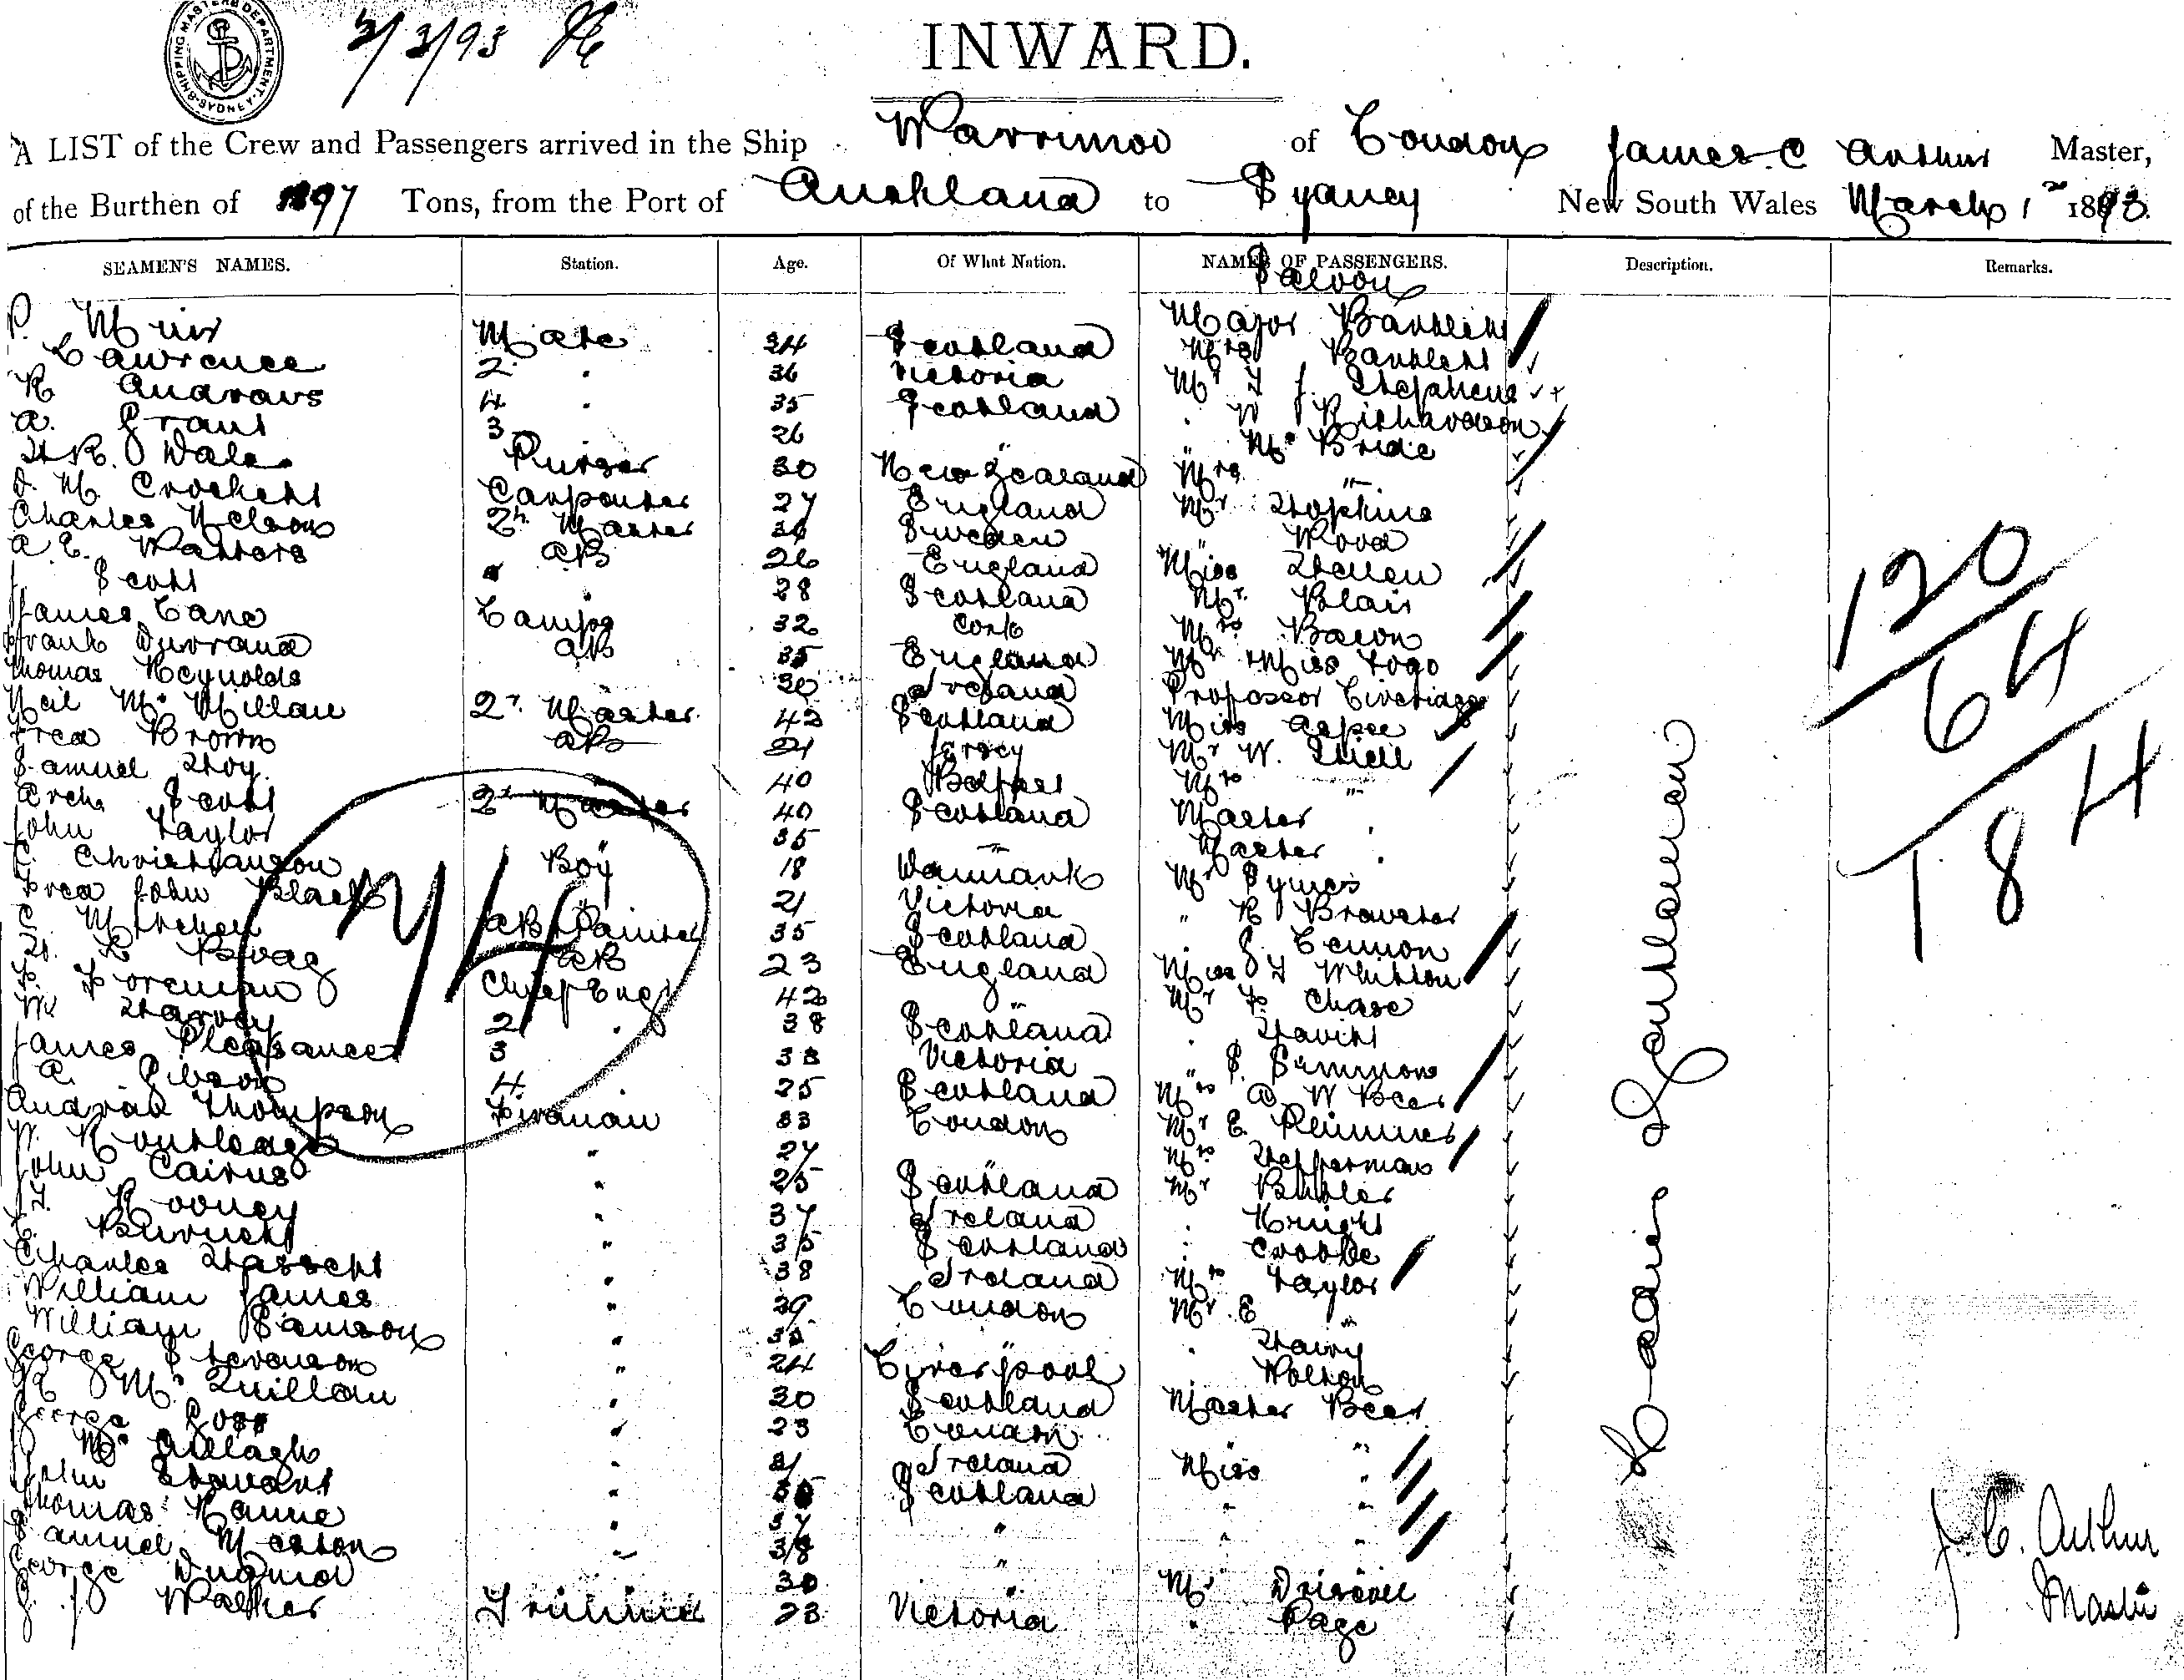 SHIPPING MASTERS DEPARTMENT. SYDNEY.
3/3/93
INWARD.
A LIST of the Crew and Passengers arrived in the Ship Warrimoo of London James C Arthur Master,
of the Burthen of 1897 Tons, from the Port of Auckland to Sydney New South Wales March 1st 1893.
SEAMEN'S NAMES. Station. Age. Of What Nation. NAMES OF PASSENGERS. Description. Remarks.
Saloon
P. Muir Mate 34 Scotland Major Bartlett
Lawrence 2 " 36 Victoria Mrs Bartlett
R Andrews 4 " 35 Scotland Mr J Stephens
A. Grant 3 26 W Richardson
H R. Wales Purser 30 New Zealand " McBride
J. M. Crockett Carpenter 27 England Mrs "
Charles Nelson 2r Master Sweden Mr Hopkins
A. E. Watters AB 26 England " Wood
J Scott 28 Scotland Miss Hellen
James Lane Lamps 32 Cork Mr. Blair
Frank Durrand AB 35 England Mrs Bacon
Thomas Reynolds 30 Ireland Miss Togo
Neil McMillan 2r Master 42 Scotland Professor Liveridge
Fred Brown AB 21 Jersey Miss
Samuel Hoy 40 Belfast Mr W. Shiell
Archd Scott 2r Master 40 Scotland Mrs "
John Taylor 35 " Master "
C. Christianson Boy 18 Denmark Master "
Fred John Black " 21 Victoria Mr Symes
Mitchell AB & Painter 35 Scotland " R Brewster
H. R AB 23 England " Lennon
F. Foreman Chief Eng 42 " Miss Whitton
W Harvey 2 " 38 Scotland Mr F. Chase
James Pleasance 3 38 Victoria "
A. Gibson 4. 25 Scotland " S. Simmons
Andrew Thompson Fireman 33 London Mrs W Beer
W. Routledge " 27 " Mr E. Plimmer
John Cairns " 25 Scotland Mrs Heffernan
J. Rooney " 37 Ireland Mr Butler
" 35 Scotland " Knight
Charles " 38 Ireland "
William James " 39 London Mrs Taylor
William Samson " " Mr E "
George Stevenson " 24 Liverpool "
R McQuillan " 30 Scotland Walton
George Goss " 23 London Master Beer
McCullagh " 21 Ireland Miss "
John Stewart " Scotland " "
Thomas Ranne " 37 " " "
Samuel Meston " 38 "
George Duguid 30 Mr Driscoll
J. Walker Trimmer 23 Victoria " Page
Ladies Gentlemen
120
64
184
74
J. C. Arthur
Master